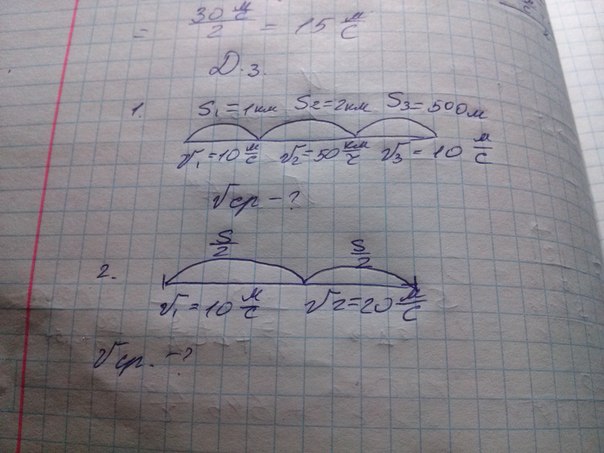 = 30 м/с / 2 = 15 м/с
Д.з.
1. S₁=1км S₂=2км S₃=500м
V₁=10 м/с V₂=50 км/ч V₃=10 м/с
Vср-?
2. S/2 S/2
V₁=10 м/с V₂=20 м/с
Vср.-?